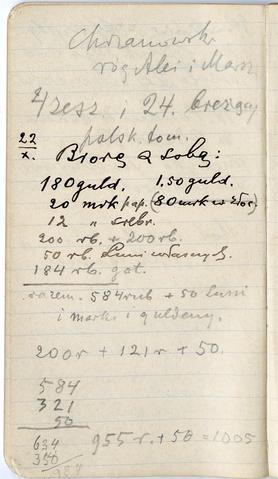 Chrzanowski
róg Alei i Marsz
4 zesz. i 24.
polsk. tom.
22/X. Biorę z sobą:
180 guld. 1.50 guld.
20 mrk pap. (80 mrk w złoc)
12 " srebr.
200 rb. + 200 rb.
50 rb. Luni własnych.
184 rb. got.
razem. 584 rub + 50 Luni
i marki i guldeny.
200 r + 121 r + 50.
584
321
50
634 955 r. + 50 = 1005
350
984